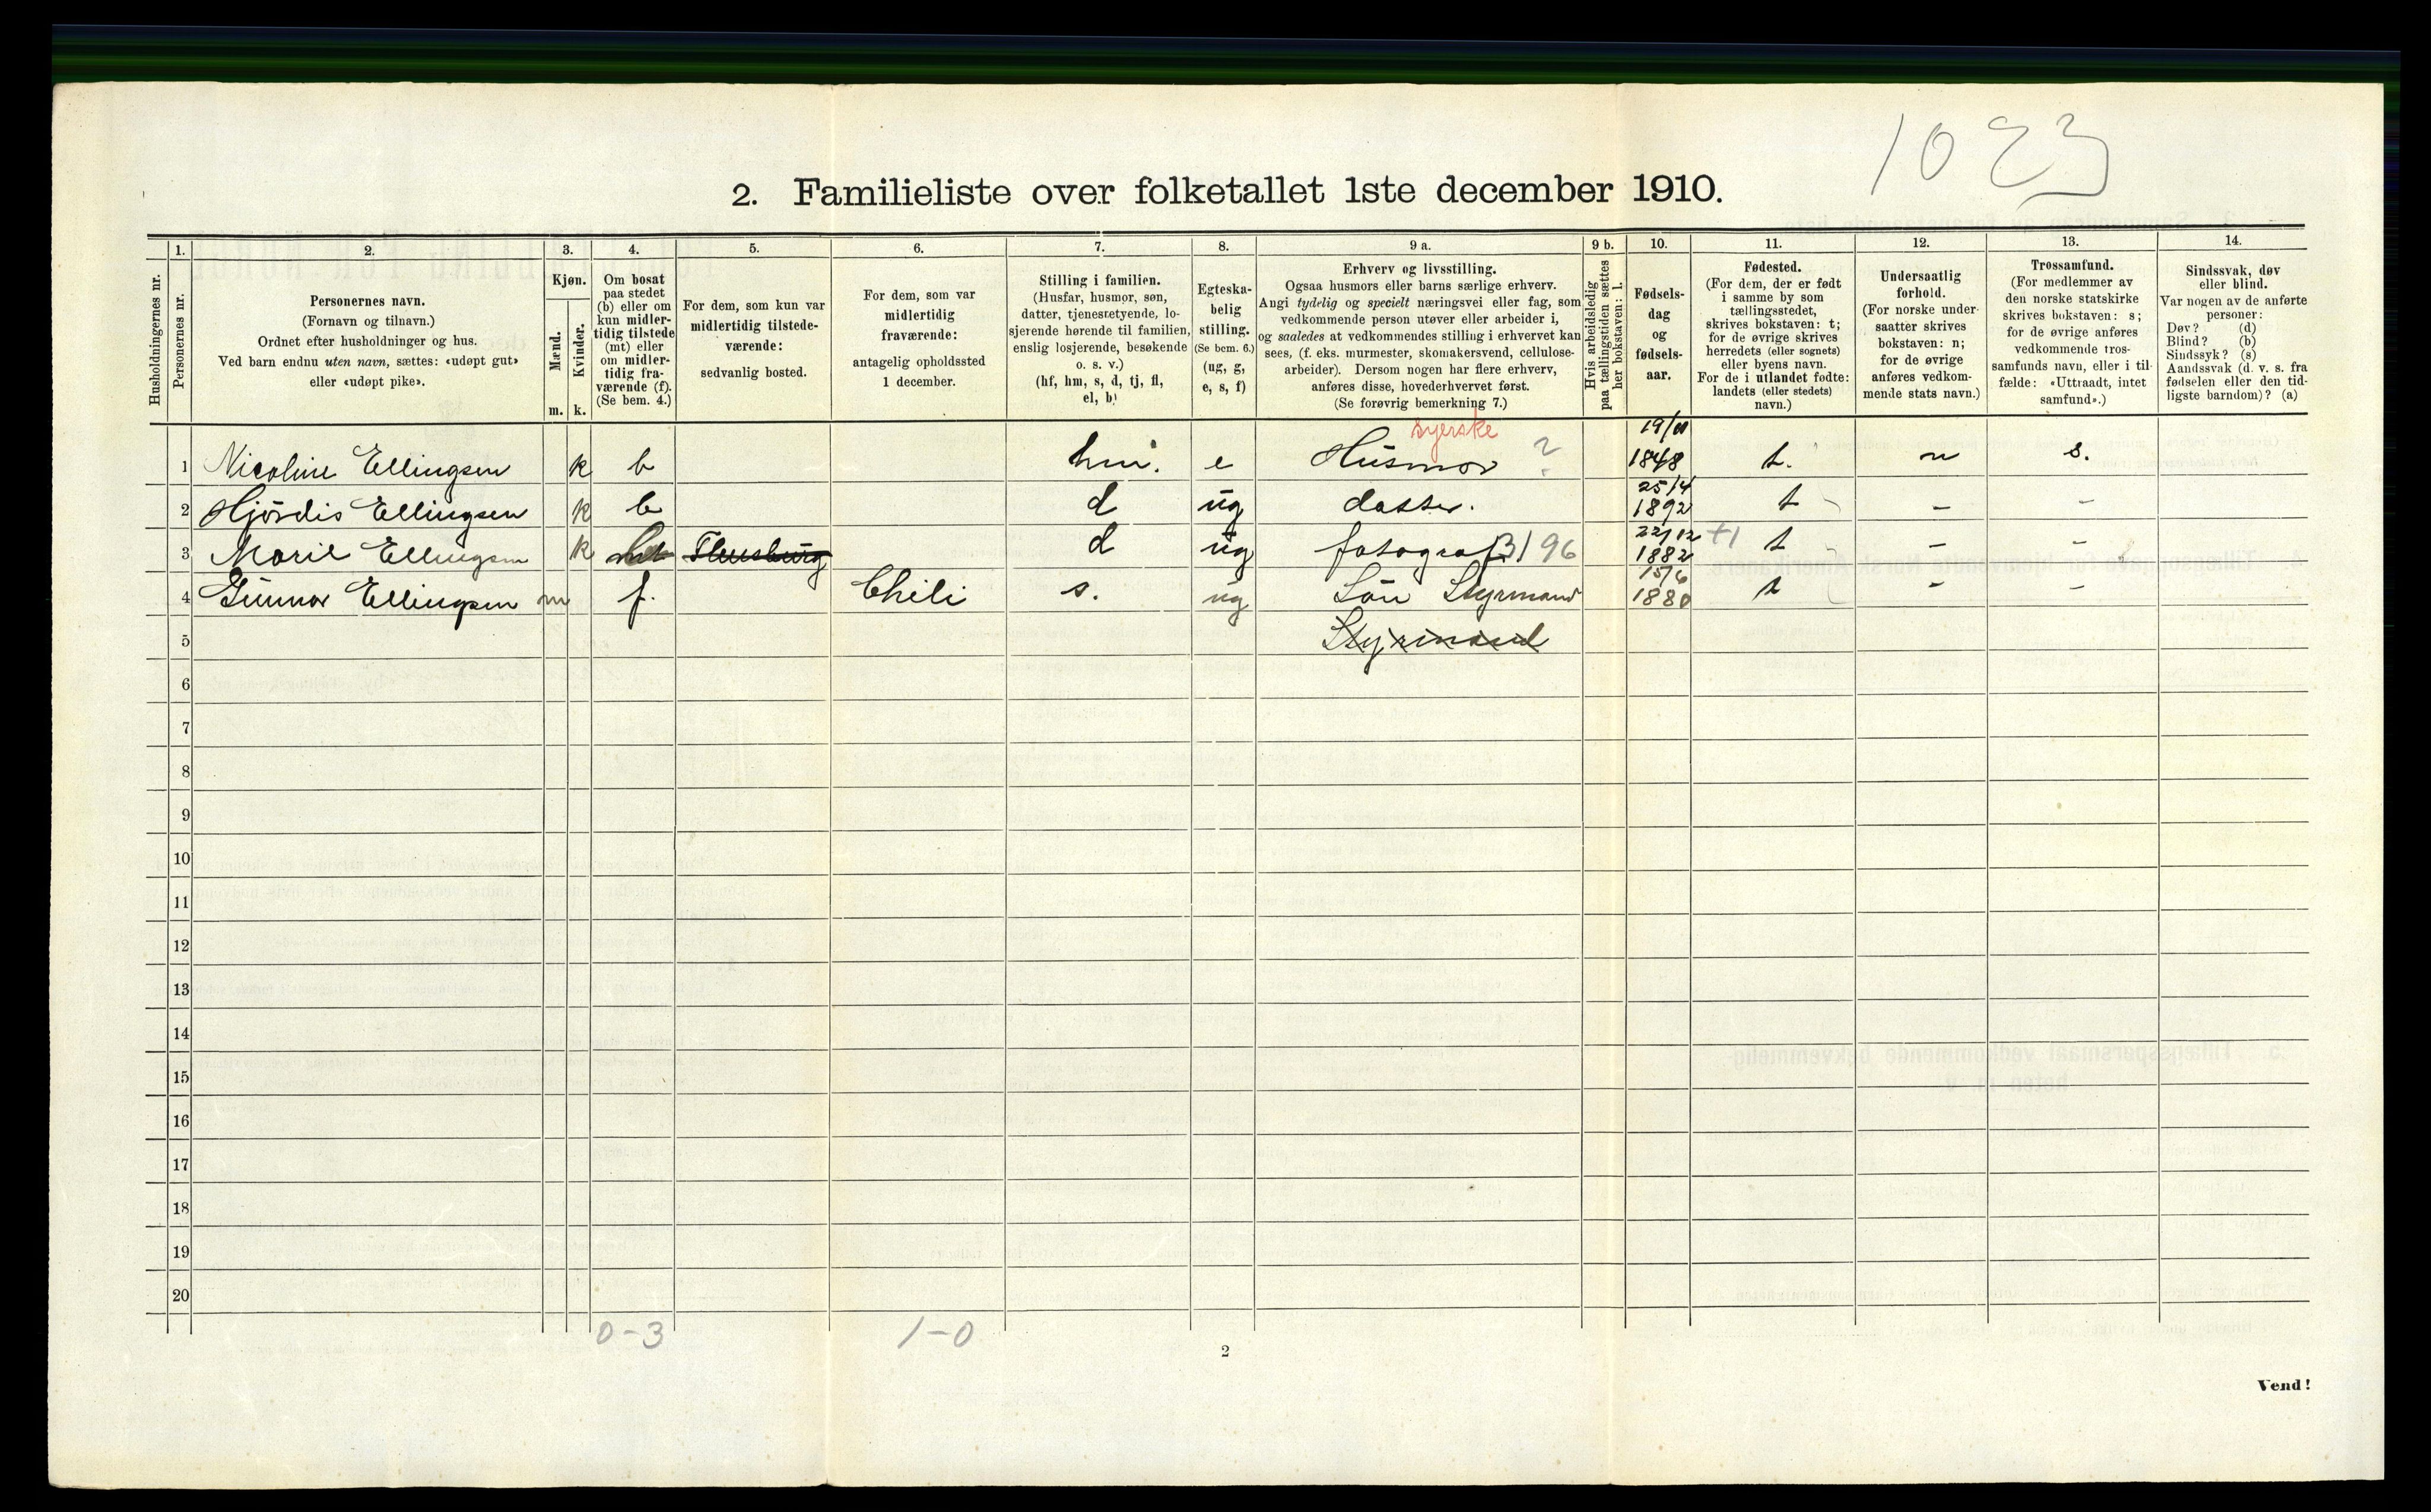 1023
2. Familieliste over folketallet 1ste december 1910.
Husholdningernes nr.
1.
Personernes nr.
2.
Personernes navn.
(Fornavn og tilnavn.)
Ordnet efter husholdninger og hus.
Ved barn endnu uten navn, sættes: «udøpt gut»
eller «udøpt pike».
3.
Kjøn.
Mænd.
Kvinder.
m. k.
4.
Om bosat
paa stedet
(b) eller om
kun midler-
tidig tilstede
(mt) eller
om midler-
tidig fra-
værende (f).
(Se bem. 4.)
5.
For dem, som kun var
midlertidig tilstede-
værende:
sedvanlig bosted.
6.
For dem, som var
midlertidig
fraværende:
antagelig opholdssted
1 december.
7.
Stilling i familien.
(Husfar, husmor, søn,
datter, tjenestetyende, lo-
sjerende hørende til familien,
enslig losjerende, besøkende
o. s. v.)
(hf, hm, s, d, tj, fl,
el, b)
8.
Egteska-
belig
stilling.
(Se bem. 6.)
(ug, g,
e, s, f)
9 a.
Erhverv og livsstilling.
Ogsaa husmors eller barns særlige erhverv.
Angi tydelig og specielt næringsvei eller fag, som
vedkommende person utøver eller arbeider i,
og saaledes at vedkommendes stilling i erhvervet kan
sees, (f. eks. murmester, skomakersvend, cellulose-
arbeider). Dersom nogen har flere erhverv,
anføres disse, hovederhvervet først.
(Se forøvrig bemerkning 7.)
9 b.
Hvis arbeidsledig
paa tællingstiden sættes
her bokstaven: l.
10.
Fødsels-
dag
og
fødsels-
aar.
11.
Fødested.
(For dem, der er født
i samme by som
tællingsstedet,
skrives bokstaven: t;
for de øvrige skrives
herredets (eller sognets)
eller byens navn.
For de i utlandet fødte:
landets (eller stedets)
navn.)
12.
Undersaatlig
forhold.
(For norske under-
saatter skrives
bokstaven: n;
for de øvrige
anføres vedkom-
mende stats navn.)
13.
Trossamfund.
(For medlemmer av
den norske statskirke
skrives bokstaven: s;
for de øvrige anføres
vedkommende tros-
samfunds navn, eller i til-
fælde: «Uttraadt, intet
samfund».)
14.
Sindssvak, døv
eller blind.
Var nogen av de anførte
personer:
Døv? (d)
Blind? (b)
Sindssyk? (s)
Aandssvak (d. v. s. fra
fødselen eller den tid-
ligste barndom)? (a)
syerske
1 Nicoline Ellingsen k b hm. e Husmor ? 1848 t. n s.
2 Hjördis Ellingsen k b d ug datter. 25/4 1892 t - -
3 Marie Ellingsen k Flensburg d ug fotograf 3196 22/12 1882 +1 t - -
4 Gunnar Ellingsen m f. Chili s. ug Sön Styrmand 15/6 1880 t - -
5 Styrmand
6
7
8
9
10
11
12
13
14
15
16
17
18
19
20
0-3 1-0
2
Vend!